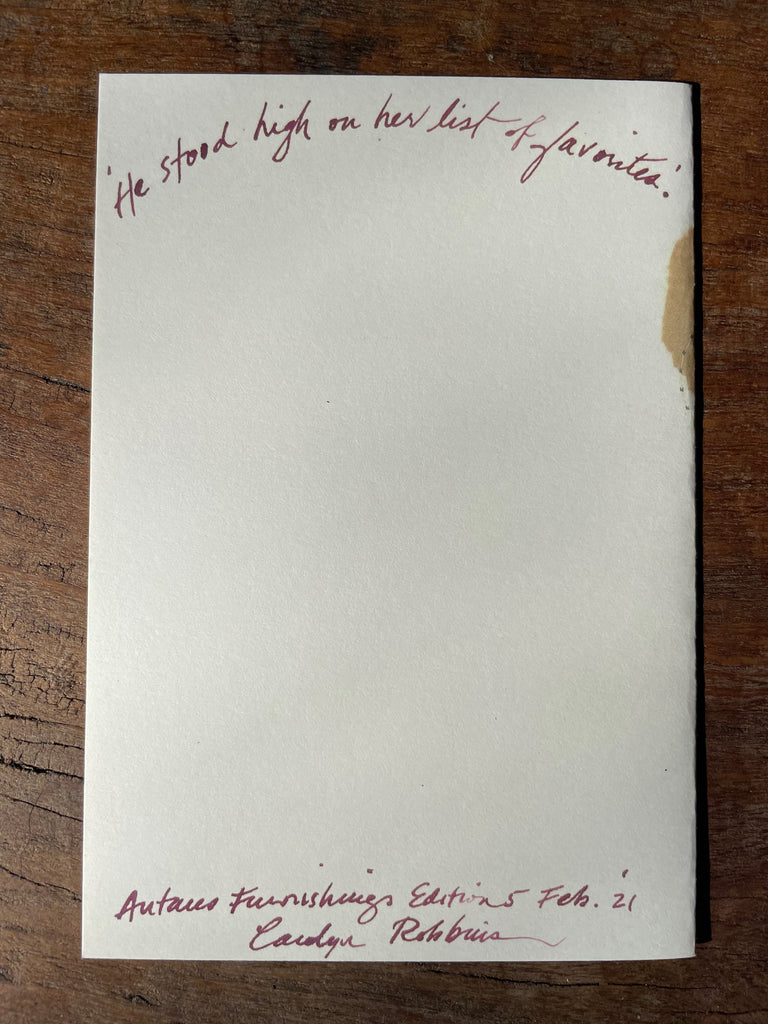 'He stood high on her list of favorites'.
Antares Furnishings Edition 5 Feb. '21
Carolyn Robbins